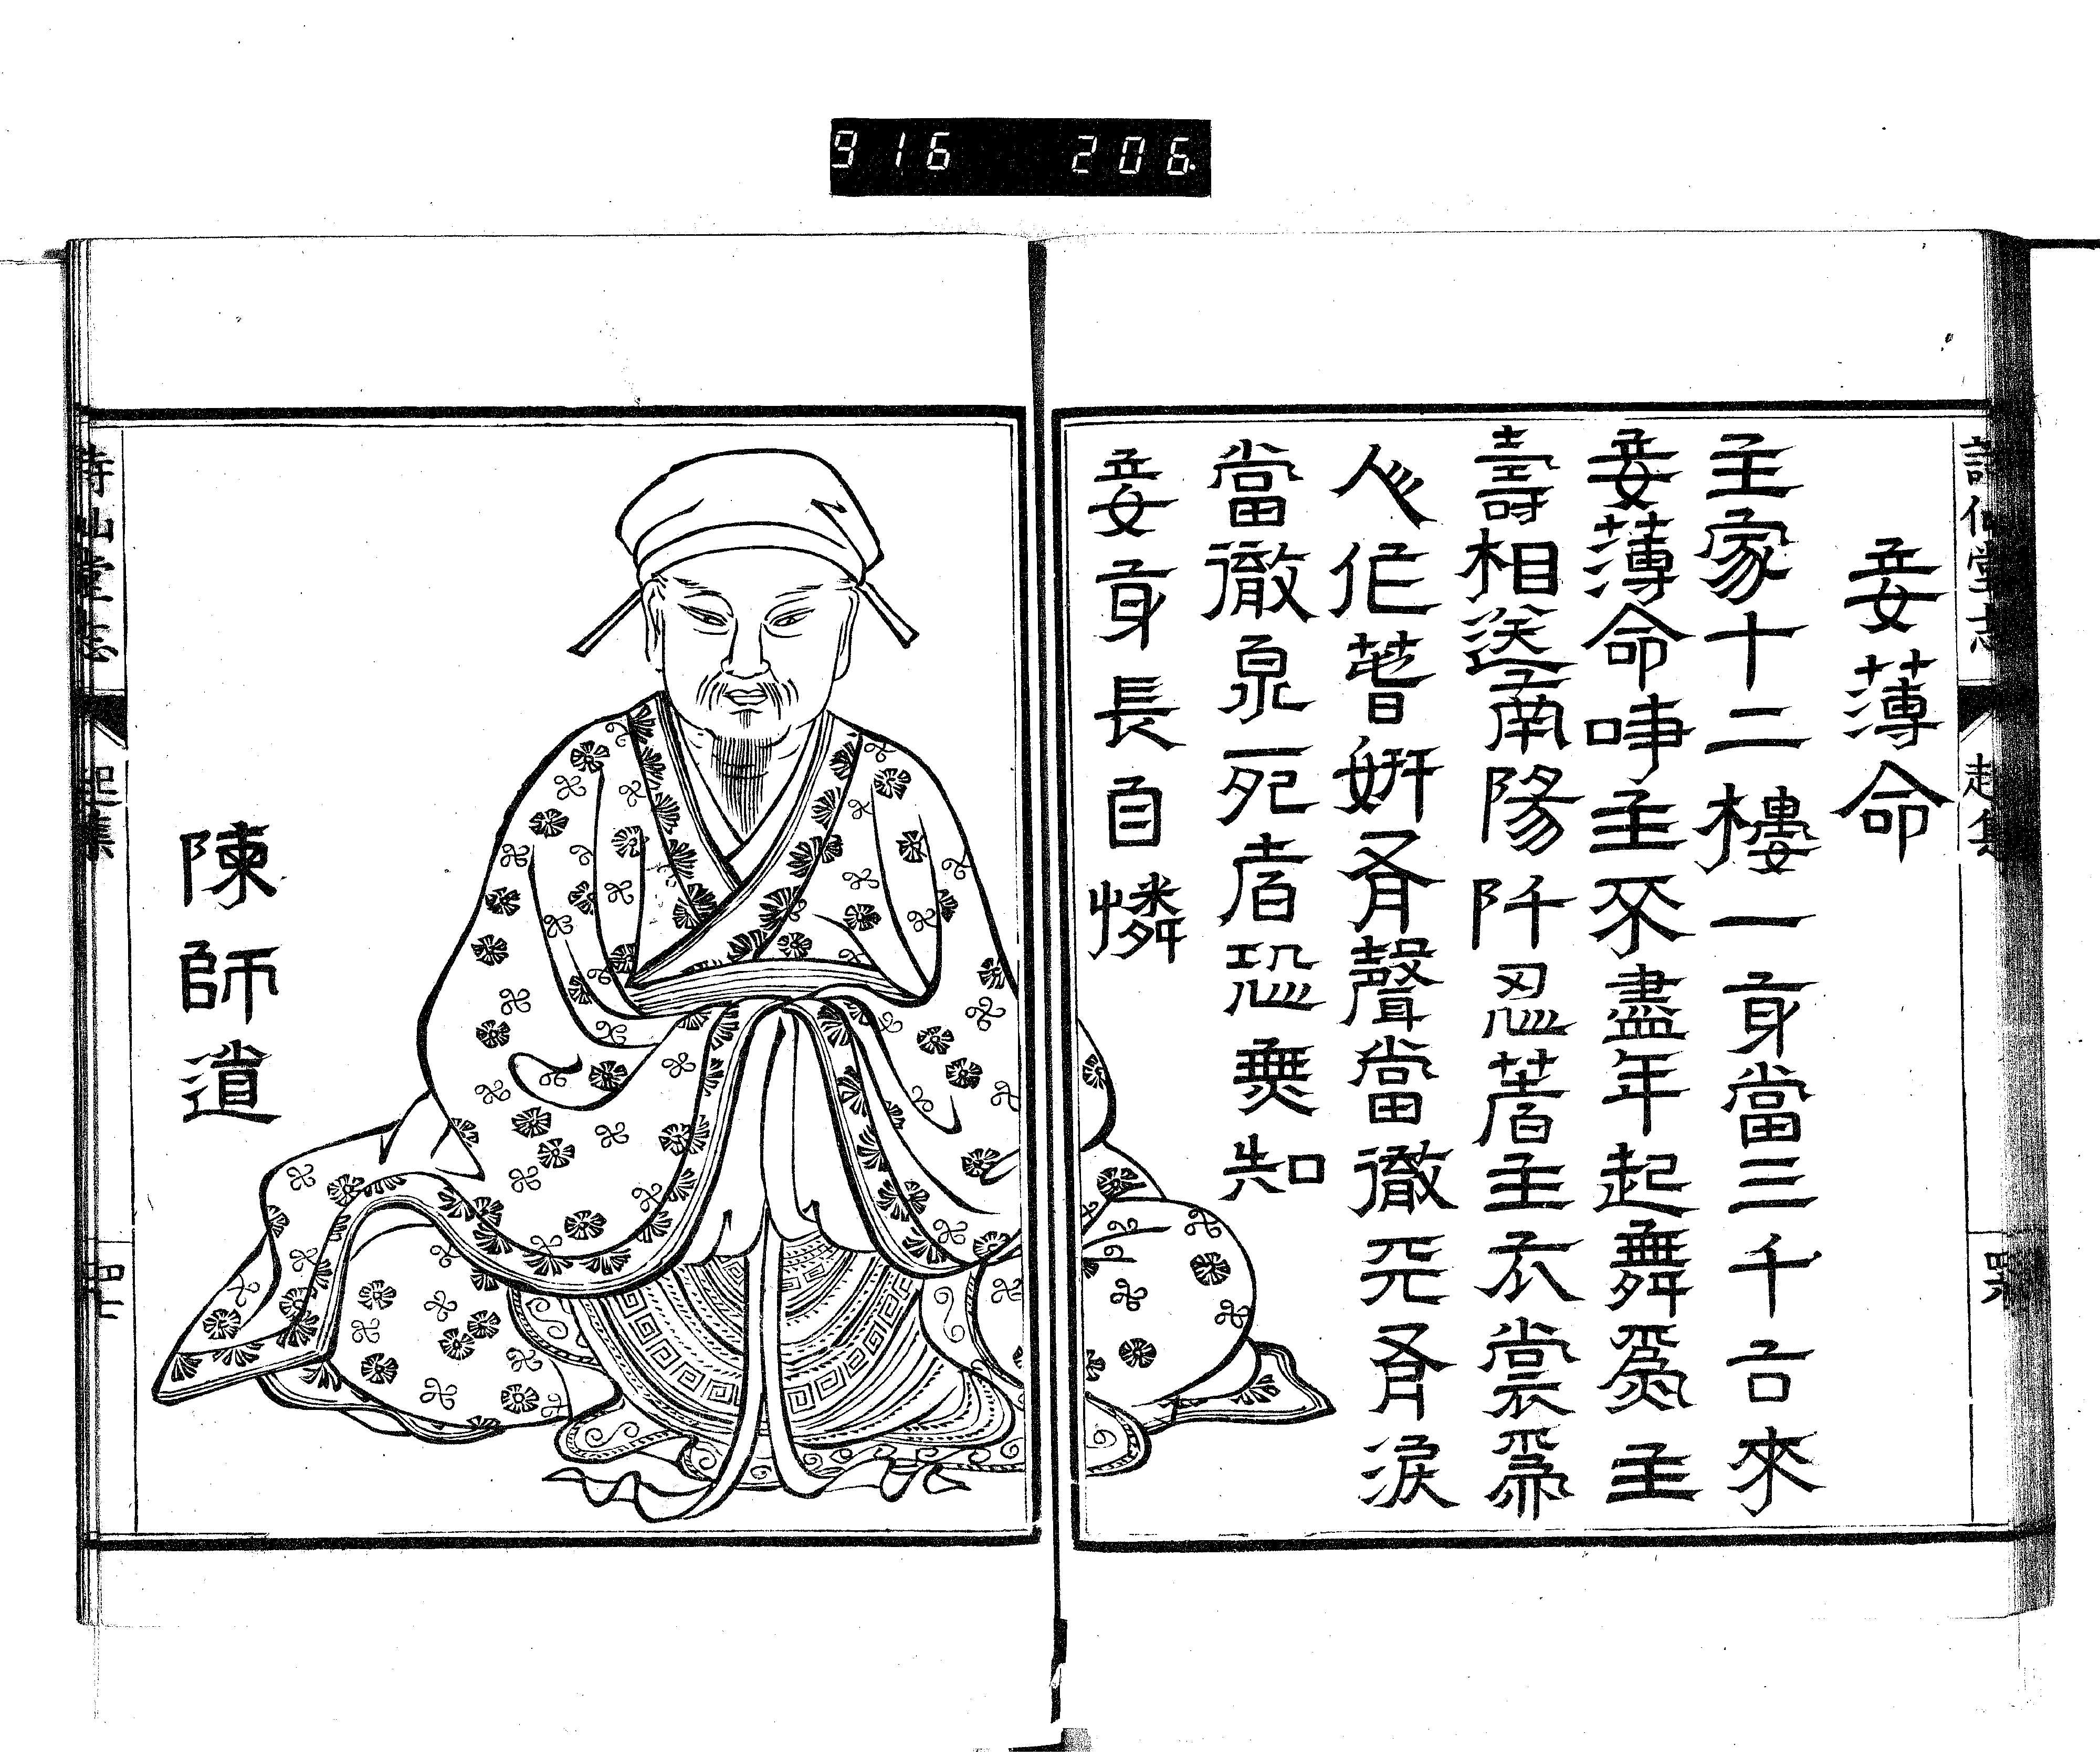 詩仙堂志 起集
妾薄命
主家十二樓一身當三千古來
妾薄命事主不盡年起舞爲主
壽相送南陽阡忍著主衣裳爲
人作春妍有聲當徹天有淚
當徹泉死者恐無知
妾身長自憐
陳師道
詩仙堂志 起集
916 206